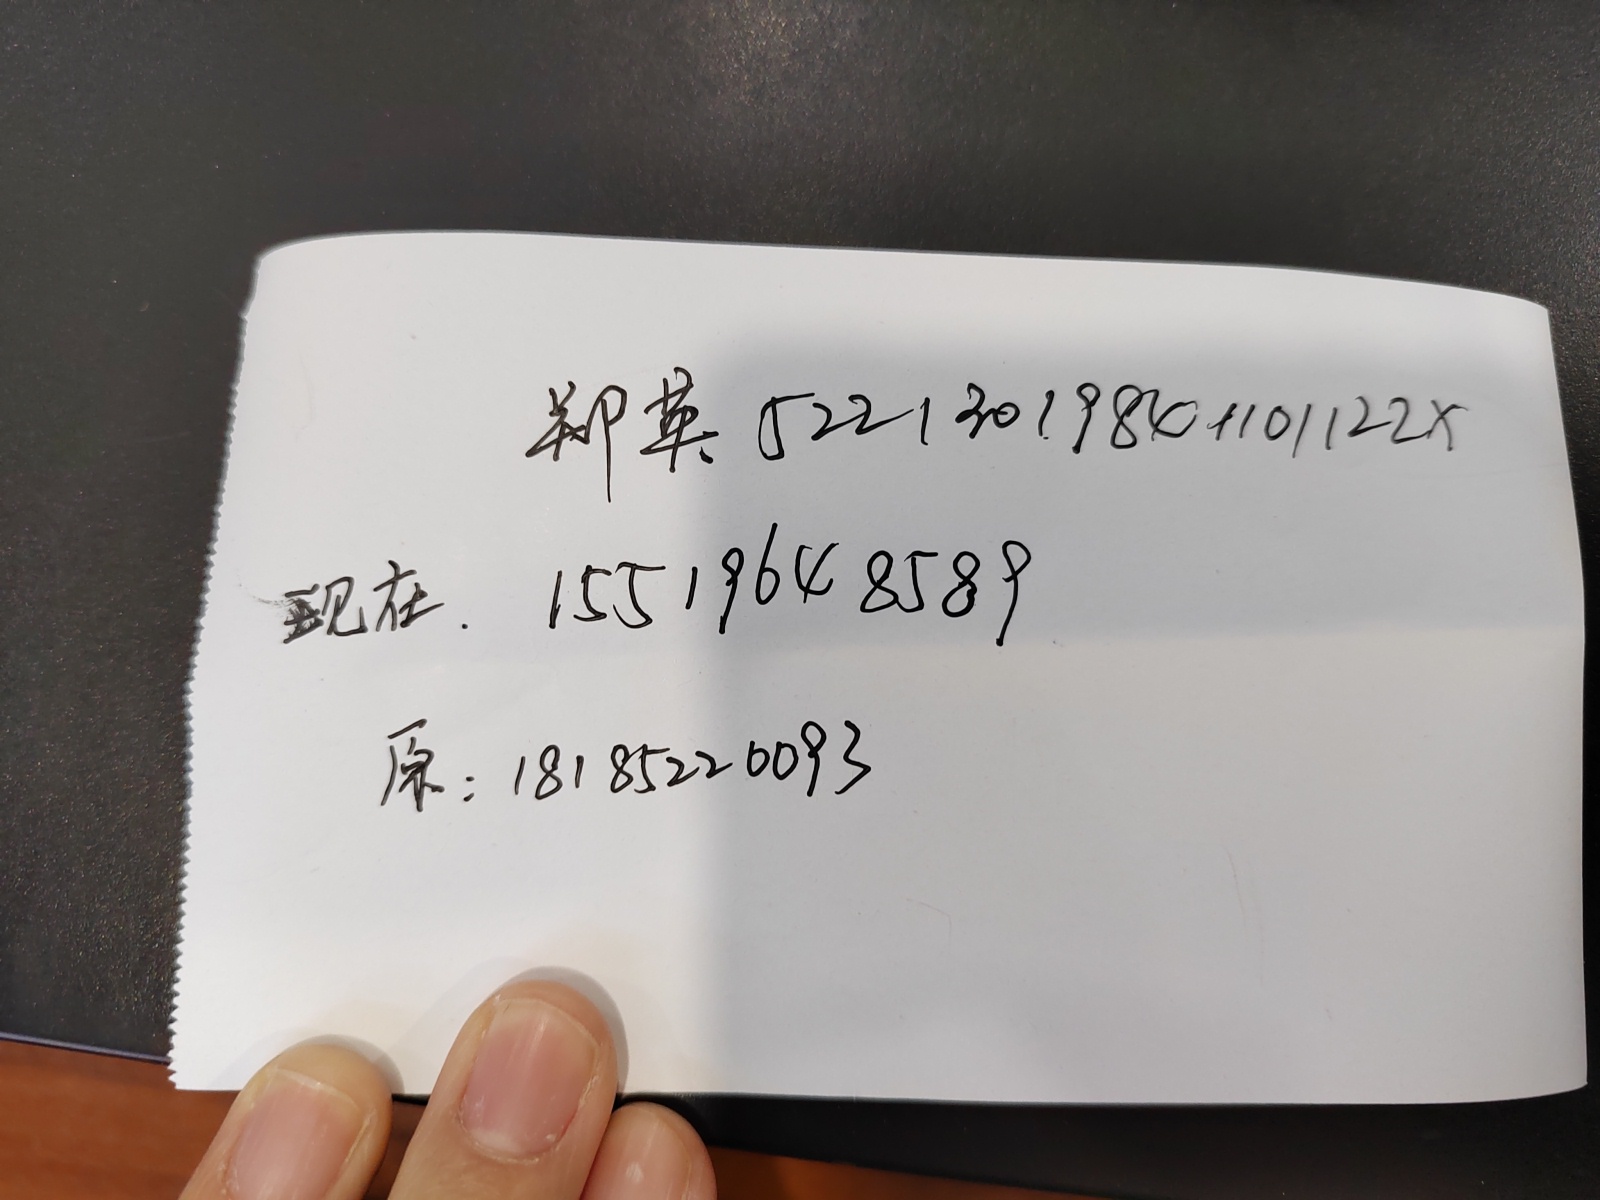 郑英 52213019841101122X
现在. 15519648589
原: 18185220093